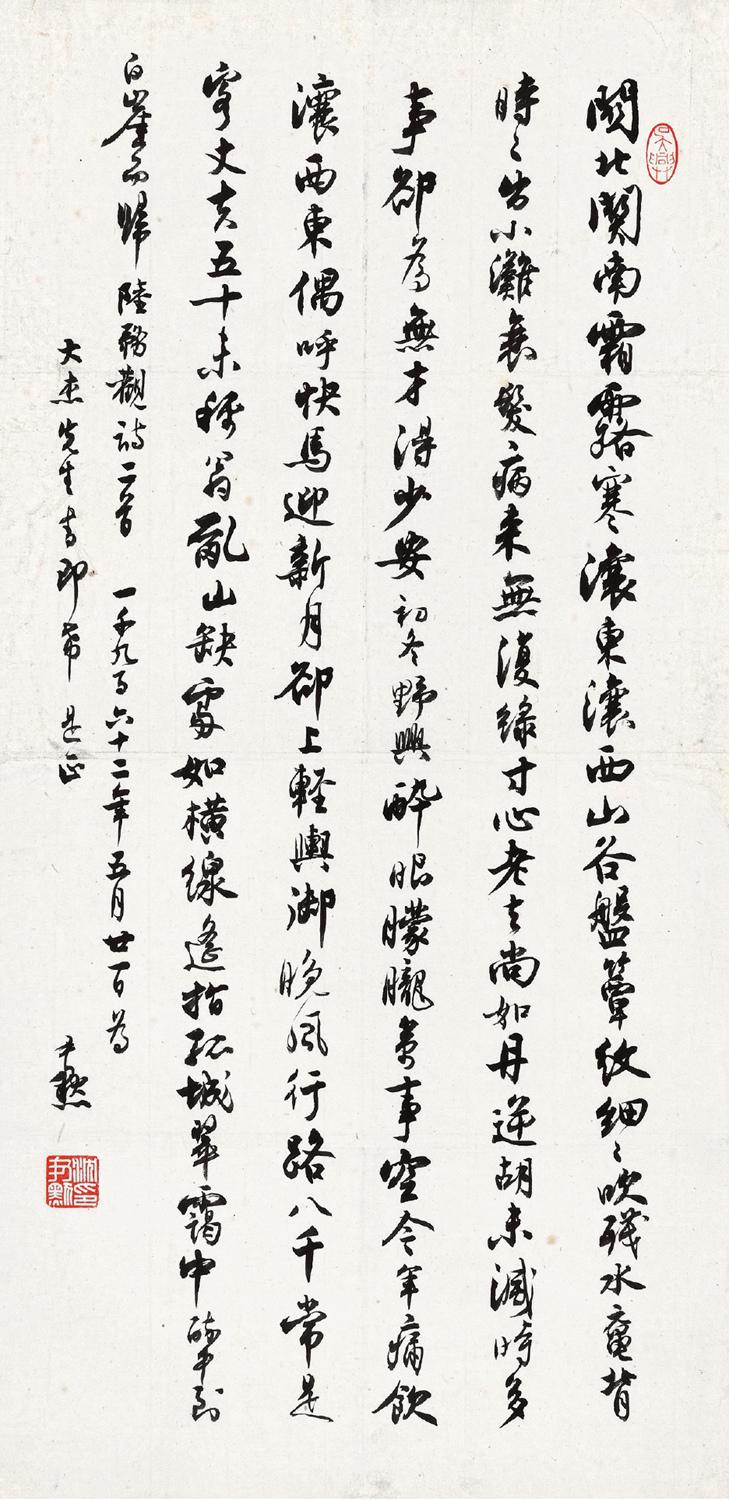 關北關南霜露寒瀼東瀼西山谷盤簟紋細〻吹殘水黿背
時〻出小灘衰髮病來無復綠寸心老去尚如丹逆胡未滅時多
事卻為無才得少安 初冬野興 醉眼朦朧萬事空今年痛飲
瀼西東偶呼快馬迎新月卻上輕輿御晚風行路八千常是
客丈夫五十未稱翁亂山缺處如橫線遙指孤城翠靄中 醉中到
白崖而歸 陸務觀詩二首 一千九百六十二年五月廿一日為
大杰先生書即希 是正 尹默
沈尹默印